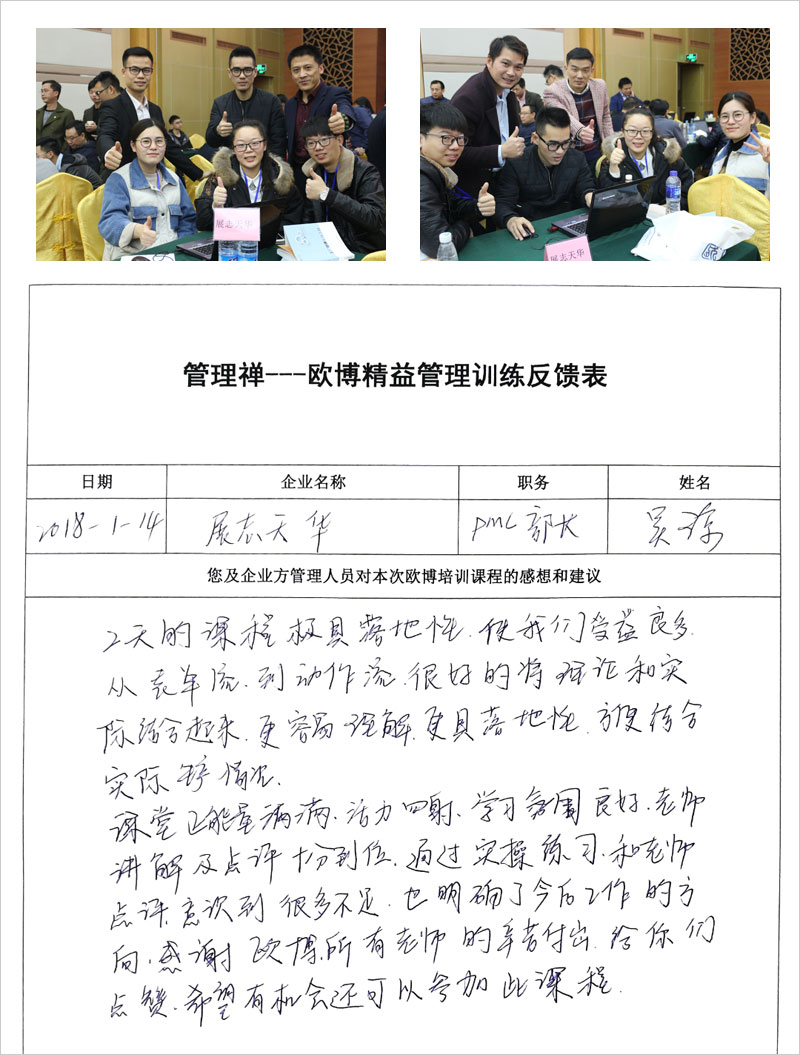 展志天华
展志天华
管理禅---欧博精益管理训练反馈表
日期 企业名称 职务 姓名
2018-1-14 展志天华 PMC部长 吴
您及企业方管理人员对本次欧博培训课程的感想和建议
2天的课程极具落地性.使我们受益良多.
从表单流.到动作流.很好的将理论和实
际结合起来.更容易理解.更具落地性.方便结合
实际 情况.
课堂正能量满满.活力四射.学习氛围良好.老师
讲解及点评十分到位.通过实操练习.和老师
点评.意识到很多不足.也明确了今后工作的方
向.感谢欧博所有老师的辛苦付出.给你们
点赞.希望有机会还可以参加此课程.